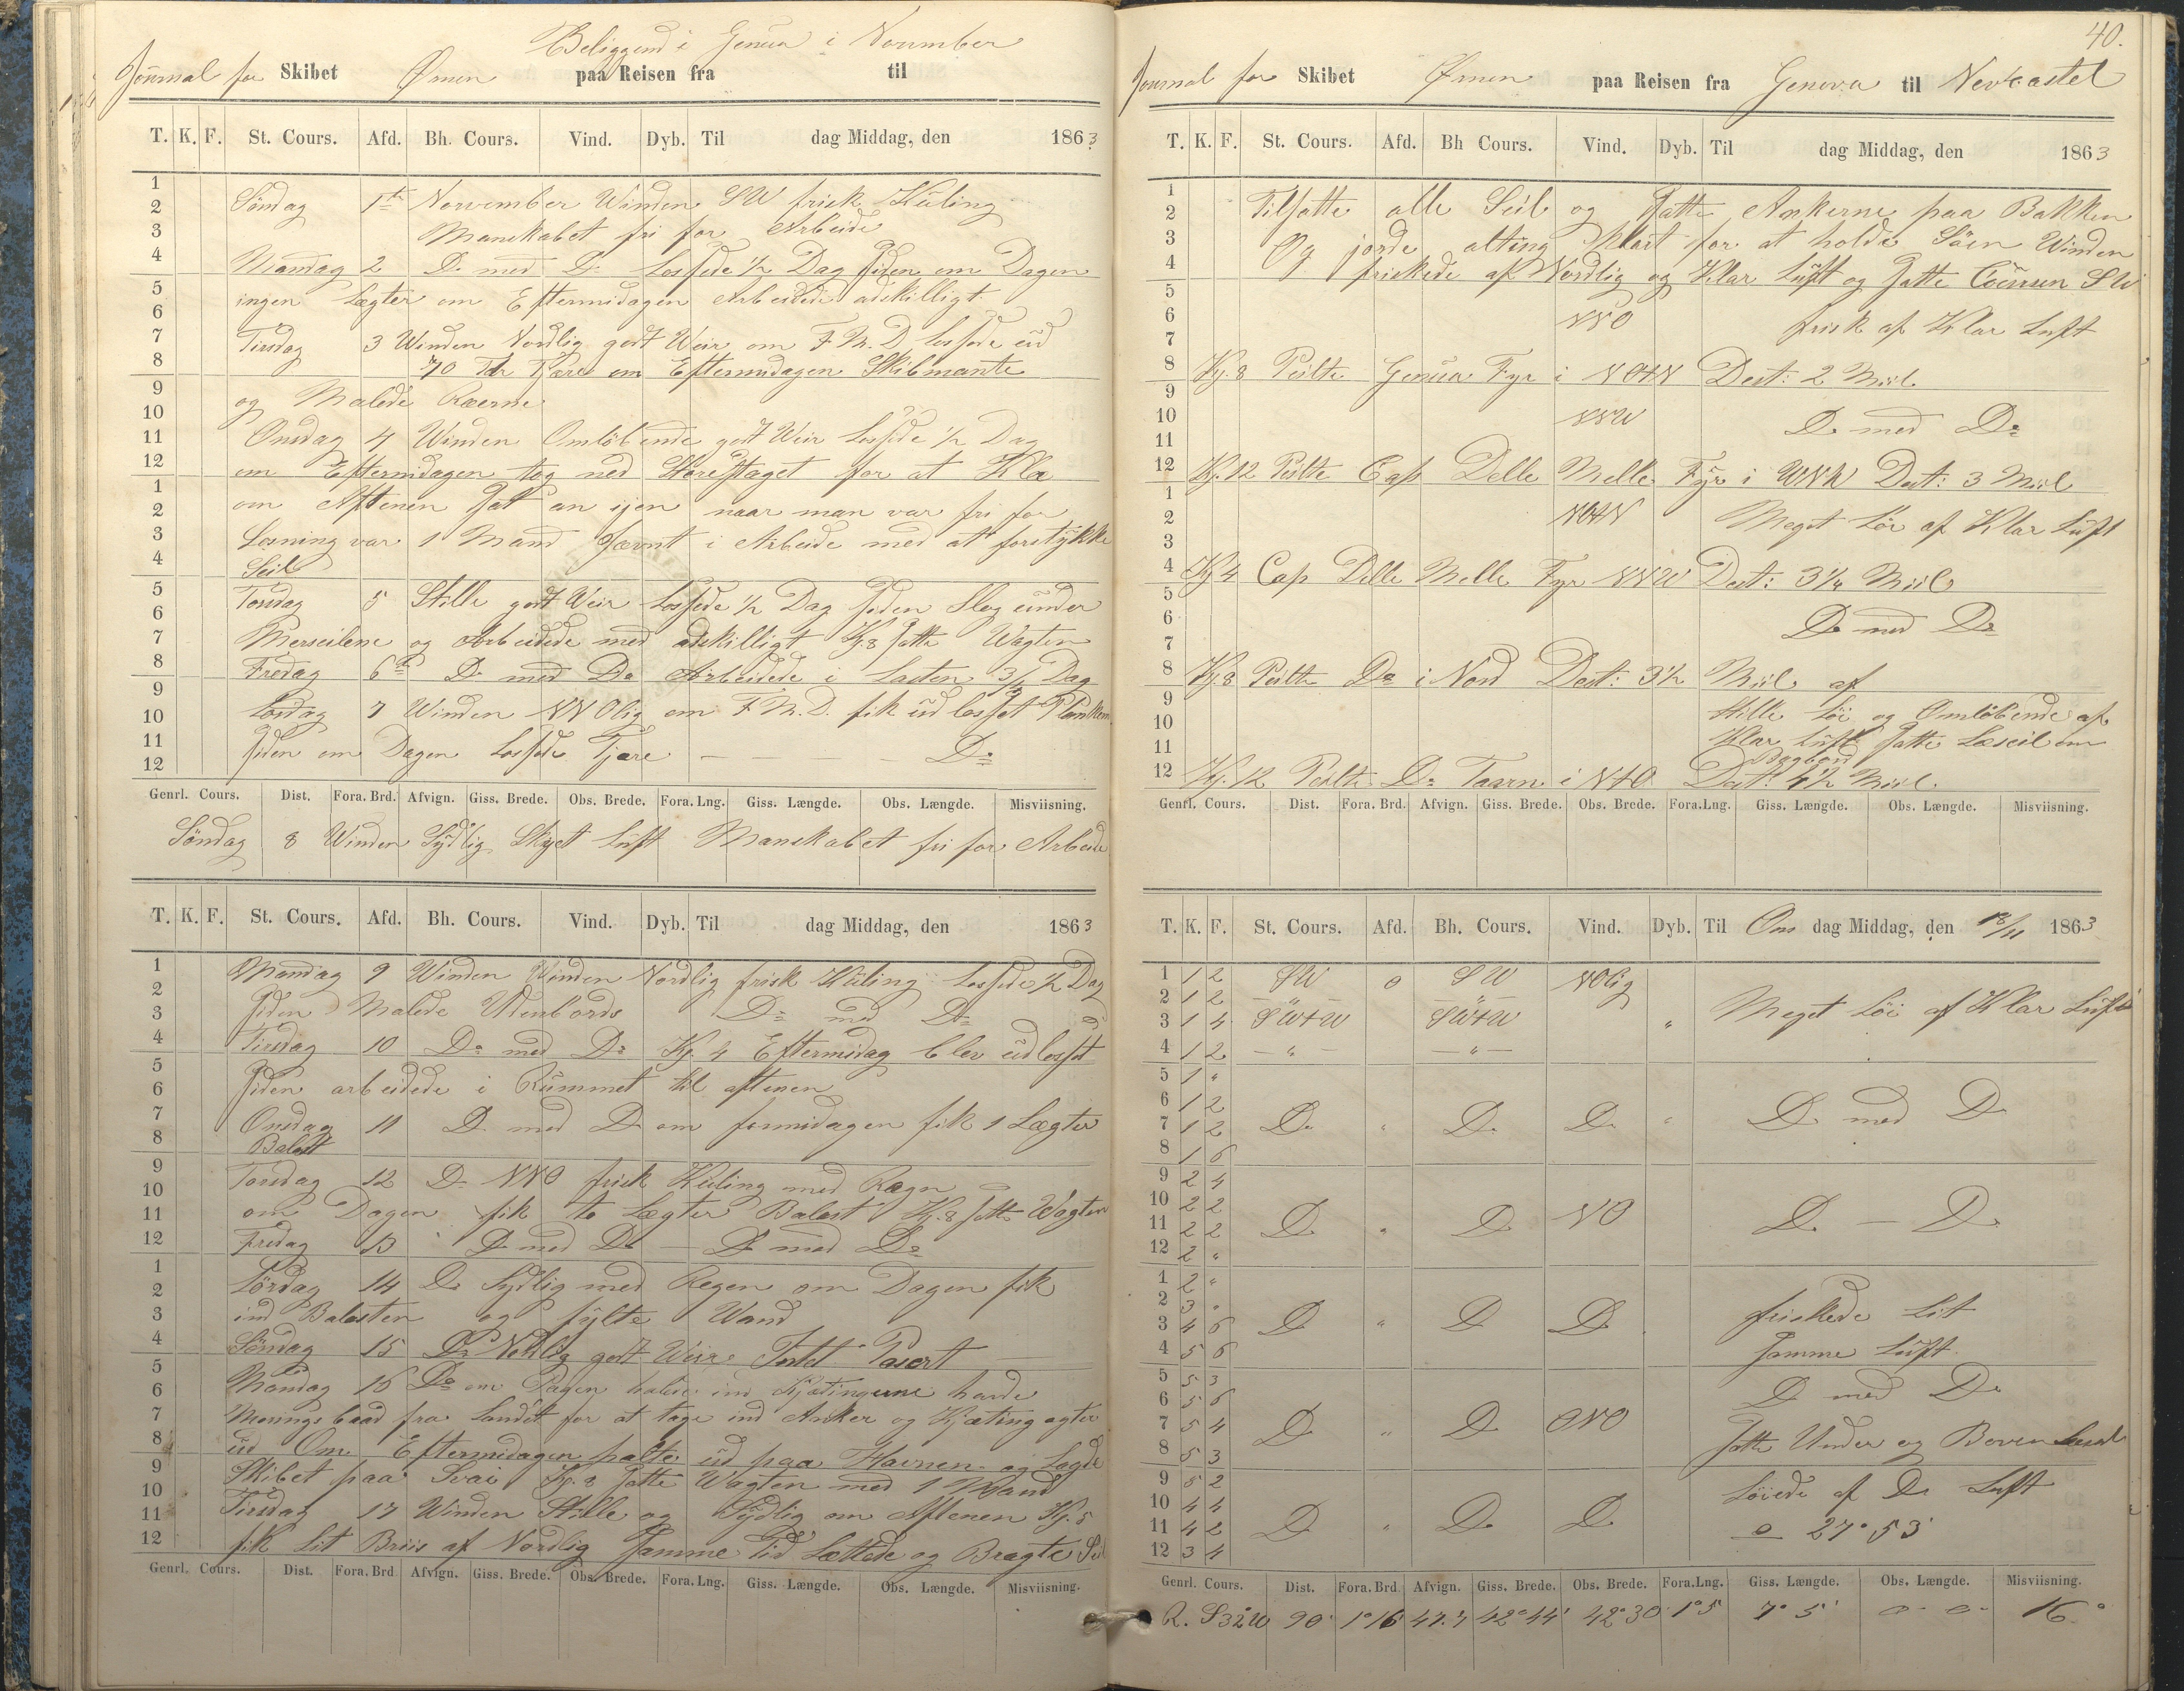 Beliggend i Genua i November
Journal for Skibet Ømen paa Reisen fra til
T. K. F. St. Cours. Afd. Bh. Cours. Vind. Dyb. Til dag Middag, den 1863
1
2 Søndag 1te November Winden SW frisk Kuling
3 Manskabet fri for Arbeide
4 Mandag 2 Do med Do Lossede 1/2 Dag siden om Dagen
5 ingen Lægter om Eftermidagen Arbeidede adskilligt
6
7 Tirsdag 3 Winden Nordlig godt Weir om F.M.D Lossede ud
8 70 Tdr Tjære om Eftermidagen Skibmante
9 og Malede Ræerne
10
11 Onsdag 4 Winden Omløbende godt Weir Lossede 1/2 Dag
12 om Eftermidagen tog ned Storestaget for at Klæ
1 om Aftenen sat an ijen naar man var fri for
2
3 Losning var 1 Mand Jævnt i Arbeide med at forstykke
4 Seil
5 Torsdag 5 Stille godt Weir Lossede 1/2 Dag siden Slog under
6
7 Merseilene og Arbeidede med adskilligt Kg. 8 satte Wagten
8 Fredag 6te Do med Do Arbeidede i Lasten 3/4 Dag
9
10 Lørdag 7 Winden NNOlig om F.M.D. fik ud losset Plankern
11 siden om Dagen Lossede Tjære — — — — Do
12
Genrl. Cours. Dist. Fora. Brd. Afvign. Giss. Brede. Obs. Brede. Fora. Lng. Giss. Længde. Obs. Længde. Misviisning.
Søndag 8 Winden Sydlig Skyet Luft Manskabet fri for Arbeide
T. K. F. St. Cours. Afd. Bh. Cours. Vind. Dyb. Til dag Middag, den 1863
1 Mandag 9 Winden Winden Nordlig frisk Kuling Lossede 1/2 Dag
2
3 siden Malede Udenbords Do med Do
4 Tirsdag 10 Do med Do Kg. 4 Eftermidag blev udlosset
5
6 siden arbeidede i Rummet til aftenen
7 Onsdag 11 Do med Do om formidagen fik 1 Lægter
8 Balast
9 Torsdag 12 Do NNO frisk Kuling med Rægn
10
11 om Dagen fik to Lægter Balast Kg. 8 satte Wagten
12 Fredag 13 Do med Do — Do med Do
1
2 Lørdag 14 Do Sydlig med Regen om Dagen fik
3 ind Balasten og fylte Wand
4 Søndag 15 Do Nordlig godt Weir
5
6 Mandag 16 Do om Dagen halede ind Kjætingerne havde
7 Morings baad fra Landet for at tage ind Anker og Kjæting agter
8 ud Om Eftermidagen halte ud paa Havnen og Lagde
9 Skibet paa Svai Kg. 8 satte Wagten med 1 Mand
10
11 Tirsdag 17 Winden Stille og Sydlig om Aftenen Kg. 5
12 fik Lit Briis af Nordlig samme tid Lættede og Bragte Seil
Genrl. Cours. Dist. Fora. Brd Afvign. Giss. Brede. Obs. Brede. Fora. Lng. Giss. Længde. Obs. Længde. Misviisning.
40.
Journal for Skibet Ømen paa Reisen fra Genova til Newcastel
T. K. F. St. Cours. Afd. Bh Cours. Vind. Dyb. Til dag Middag, den 1863
1
2 Tilsatte alle Seil og satte Ankerne paa Bakken
3 Og jorde alting Klart for at holde Søen Winden
4 friskede af Nordlig og Klar Luft og satte Coursen SW
5
6 NNO frisk af Klar Luft
7
8 Kg. 8 Peilte Genua Fyr i NOtN Dest: 2 Miil
9
10 NNW Do med Do
11
12 Kg. 12 Peilte Cap Delle Melle Fyr i WNW Dest: 3 Miil
1
2 NOtN Meget Løi af Klar Luft
3
4 Kg 4 Cap Delle Melle Fyr NNW Dest: 3 1/4 Miil
5
6 Do med Do
7
8 Kg. 8 Peilte Do i Nord Dest: 3 1/2 Miil af
9 Stille Løi og Omløbende af
10
11 Klar Luft satte Læseil om Bagbord
12 Kg. 12 Peilte Do Taarn i NtO Dest: 4 1/2 Miil
Genrl. Cours. Dist. Fora. Brd. Afvign. Giss. Brede. Obs. Brede. Fora.Lng. Giss. Længde. Obs. Længde. Misviisning.
T. K. F. St. Cours. Afd. Bh. Cours. Vind. Dyb. Til Ons dag Middag, den 18/11 1863
1 1 2 SW 0 SW NOlig
2 1 2 — " — — " — Meget Løi af Klar Luft
3 1 4 SWtW SWtW "
4 1 2 — " — — " —
5 1 "
6 1 2
7 1 2 Do " Do Do " Do med Do
8 1 6
9 2 4
10 2 2
11 2 2 Do " Do NO Do — Do
12 2 "
1 2 "
2 3 " friskede Lit
3 4 6 Do " Do Do
4 5 6 samme Luft
5 5 3 Do med Do
6 5 6
7 5 4 Do " Do ONO
8 5 3 satte Under og Boven
9 5 2
10 4 4 Løiede af Do Luft
11 4 2 Do " Do Do 27° 53'
12 3 4
Genrl. Cours. Dist. Fora. Brd. Afvign. Giss. Brede. Obs. Brede. Fora.Lng. Giss. Længde. Obs. Længde. Misviisning.
R. S32W 90' 1°16' 47.7 42°44' 42°30 1°5 7° 5' 0° 0' 16°